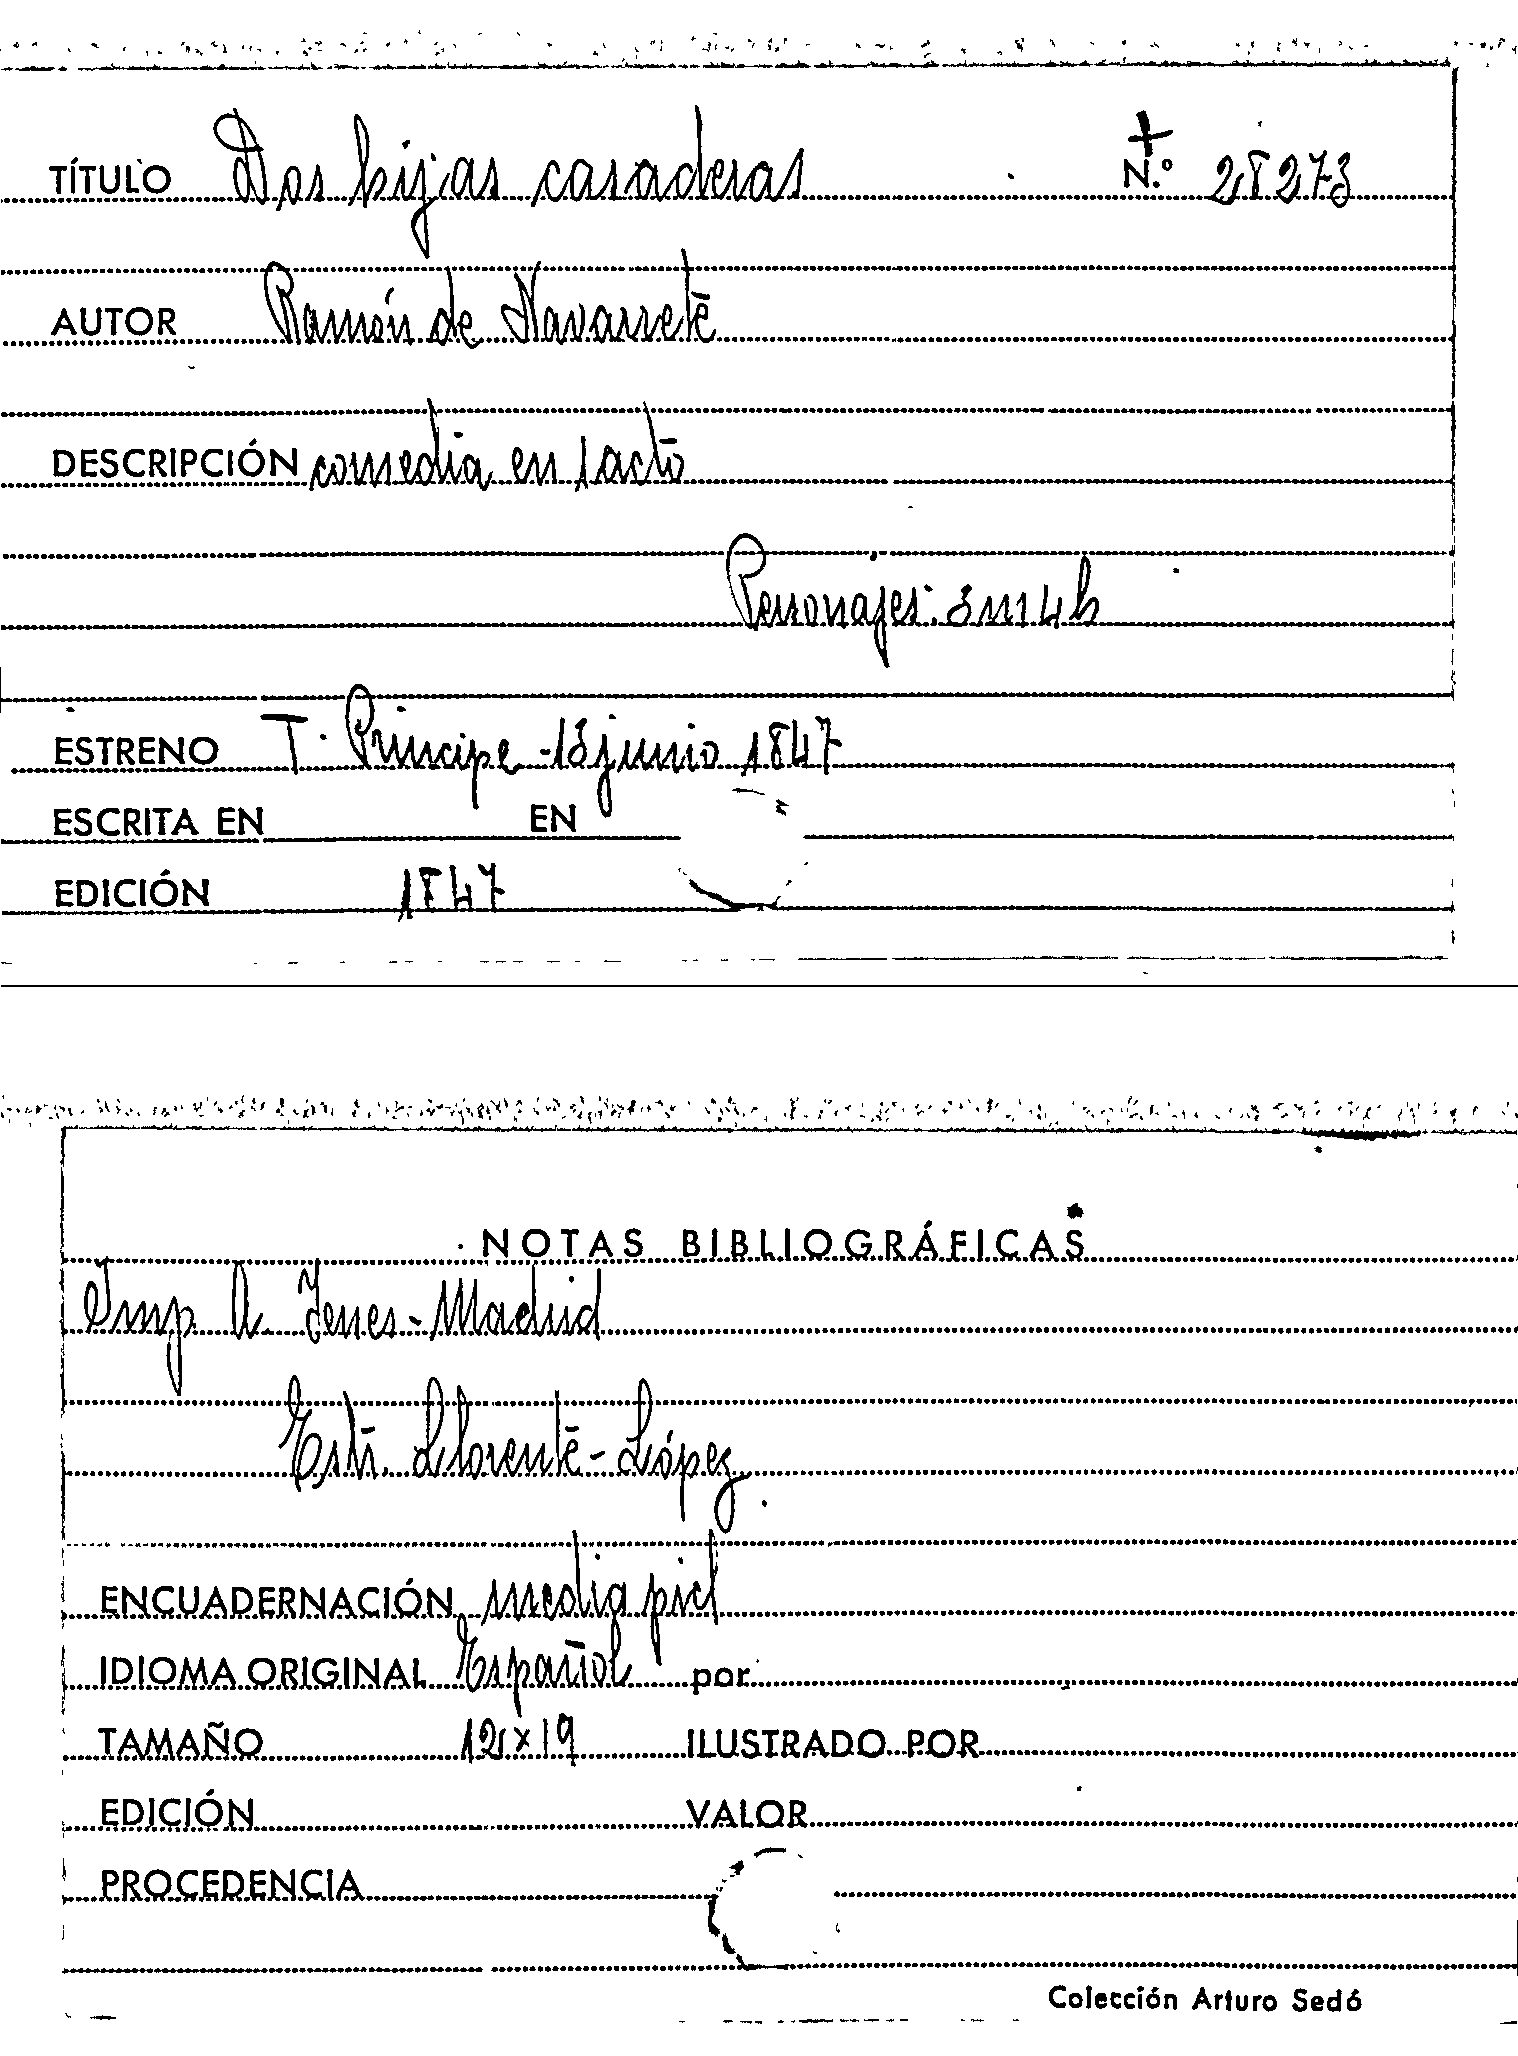 TÍTULO Dos hijas casaderas + N.º 28273
AUTOR Ramón de Navarrete
DESCRIPCIÓN comedia en 1 acto
Personajes: 3 m 4 h
ESTRENO T. Príncipe - 13 junio 1847
ESCRITA EN EN
EDICIÓN 1847
NOTAS BIBLIOGRÁFICAS
Imp A. Yenes - Madrid
Estr. Llorente - López
ENCUADERNACIÓN media piel
IDIOMA ORIGINAL Español por
TAMAÑO 12 x 19 ILUSTRADO POR
EDICIÓN VALOR
PROCEDENCIA
Colección Arturo Sedó